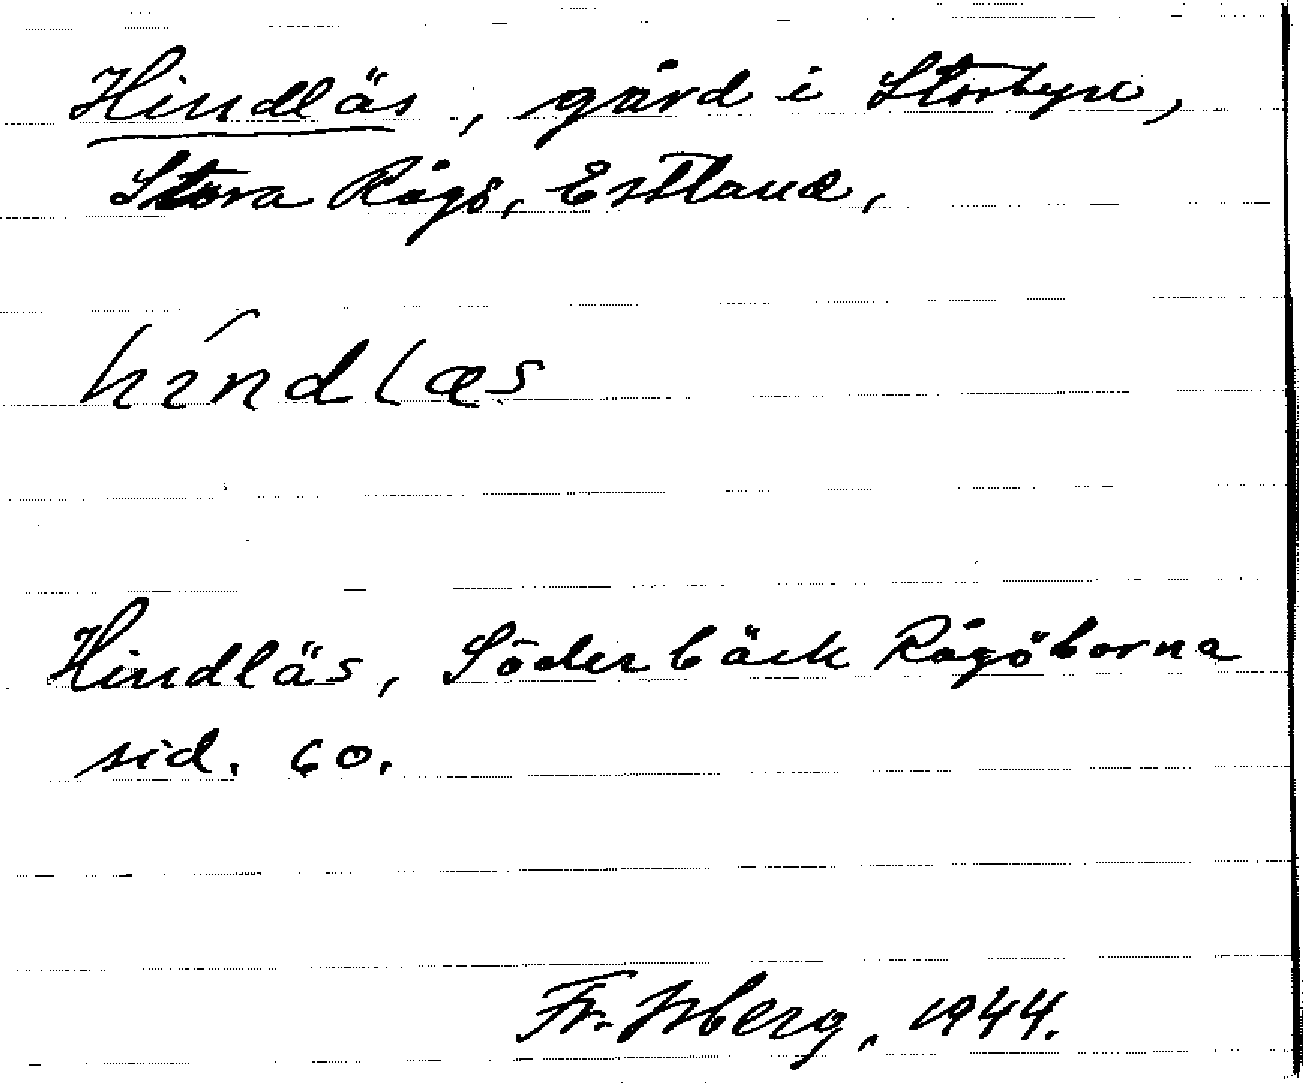 Hindläs, gård i Storbyn,
Stora Rågö, Estland,
híndlæs
Hindläs, Söderbäck Rågöborna
sid. 60.
Fr. Isberg, 1944.